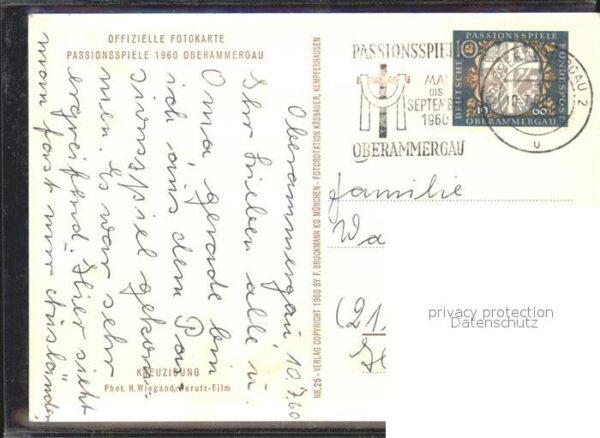 OFFIZIELLE FOTOKARTE
PASSIONSSPIELE 1960 OBERAMMERGAU
Oberammergau 10.7.60
Ihr Lieben alle u.
Oma, gerade bin
ich aus dem Pas-
sionsspiel gekom-
men. Es war sehr
ergreifend. Hier sieht
man fast nur Ausländer,
KREUZIGUNG
Phot. H. Wiegand, Perutz-Film
NR. 25 - VERLAG COPYRIGHT 1960 BY F. BRUCKMANN KG MÜNCHEN - FOTOROTATION KÄSBAUER, KEMPFENHAUSEN
PASSIONSSPIELE
MAI
BIS
SEPTEMBER
1960
OBERAMMERGAU
PASSIONSSPIELE
DEUTSCHE
BUNDESPOST
10
19 60
OBERAMMERGAU
GAU 2
u
Familie
Wa
(21
privacy protection
Datenschutz